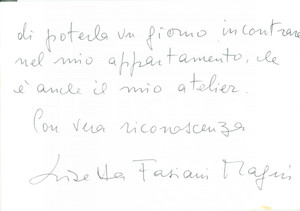 di poterla un giorno incontrare
nel mio appartamento, che
è anche il mio atelier.
Con vera riconoscenza
Fasiani